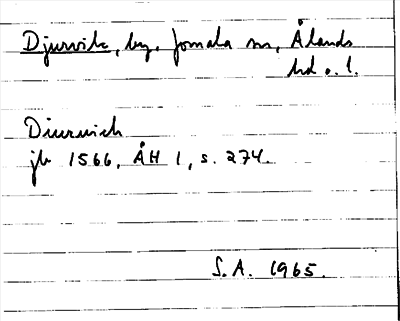 Djurvik, by, Jomala sn, Ålands
hd o. l.
Diurwich
jb 1566, ÅH 1, s. 274.
S.A. 1965.